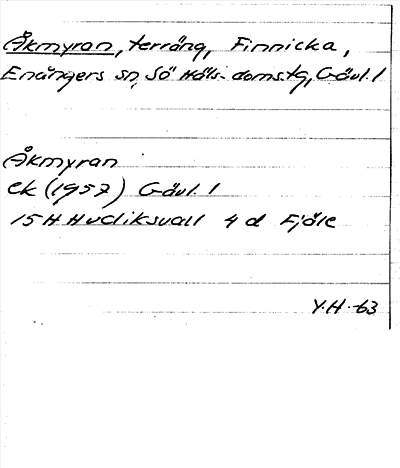 Åkmyran, terräng, Finnicka,
Enångers sn, Sö Häls. domstg, Gävl. l
Åkmyran
Ek (1957) Gävl. l
15 H Hudiksvall 4 d Fjäle
Y.H -63